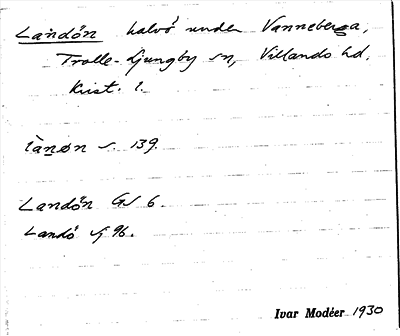 Landön halvö under Vanneberga,
Trolle-Ljungby sn, Villands hd.
Krist. l.
lànøn s. 139.
Landön GS 6.
Landö 96.
Ivar Modéer 1930